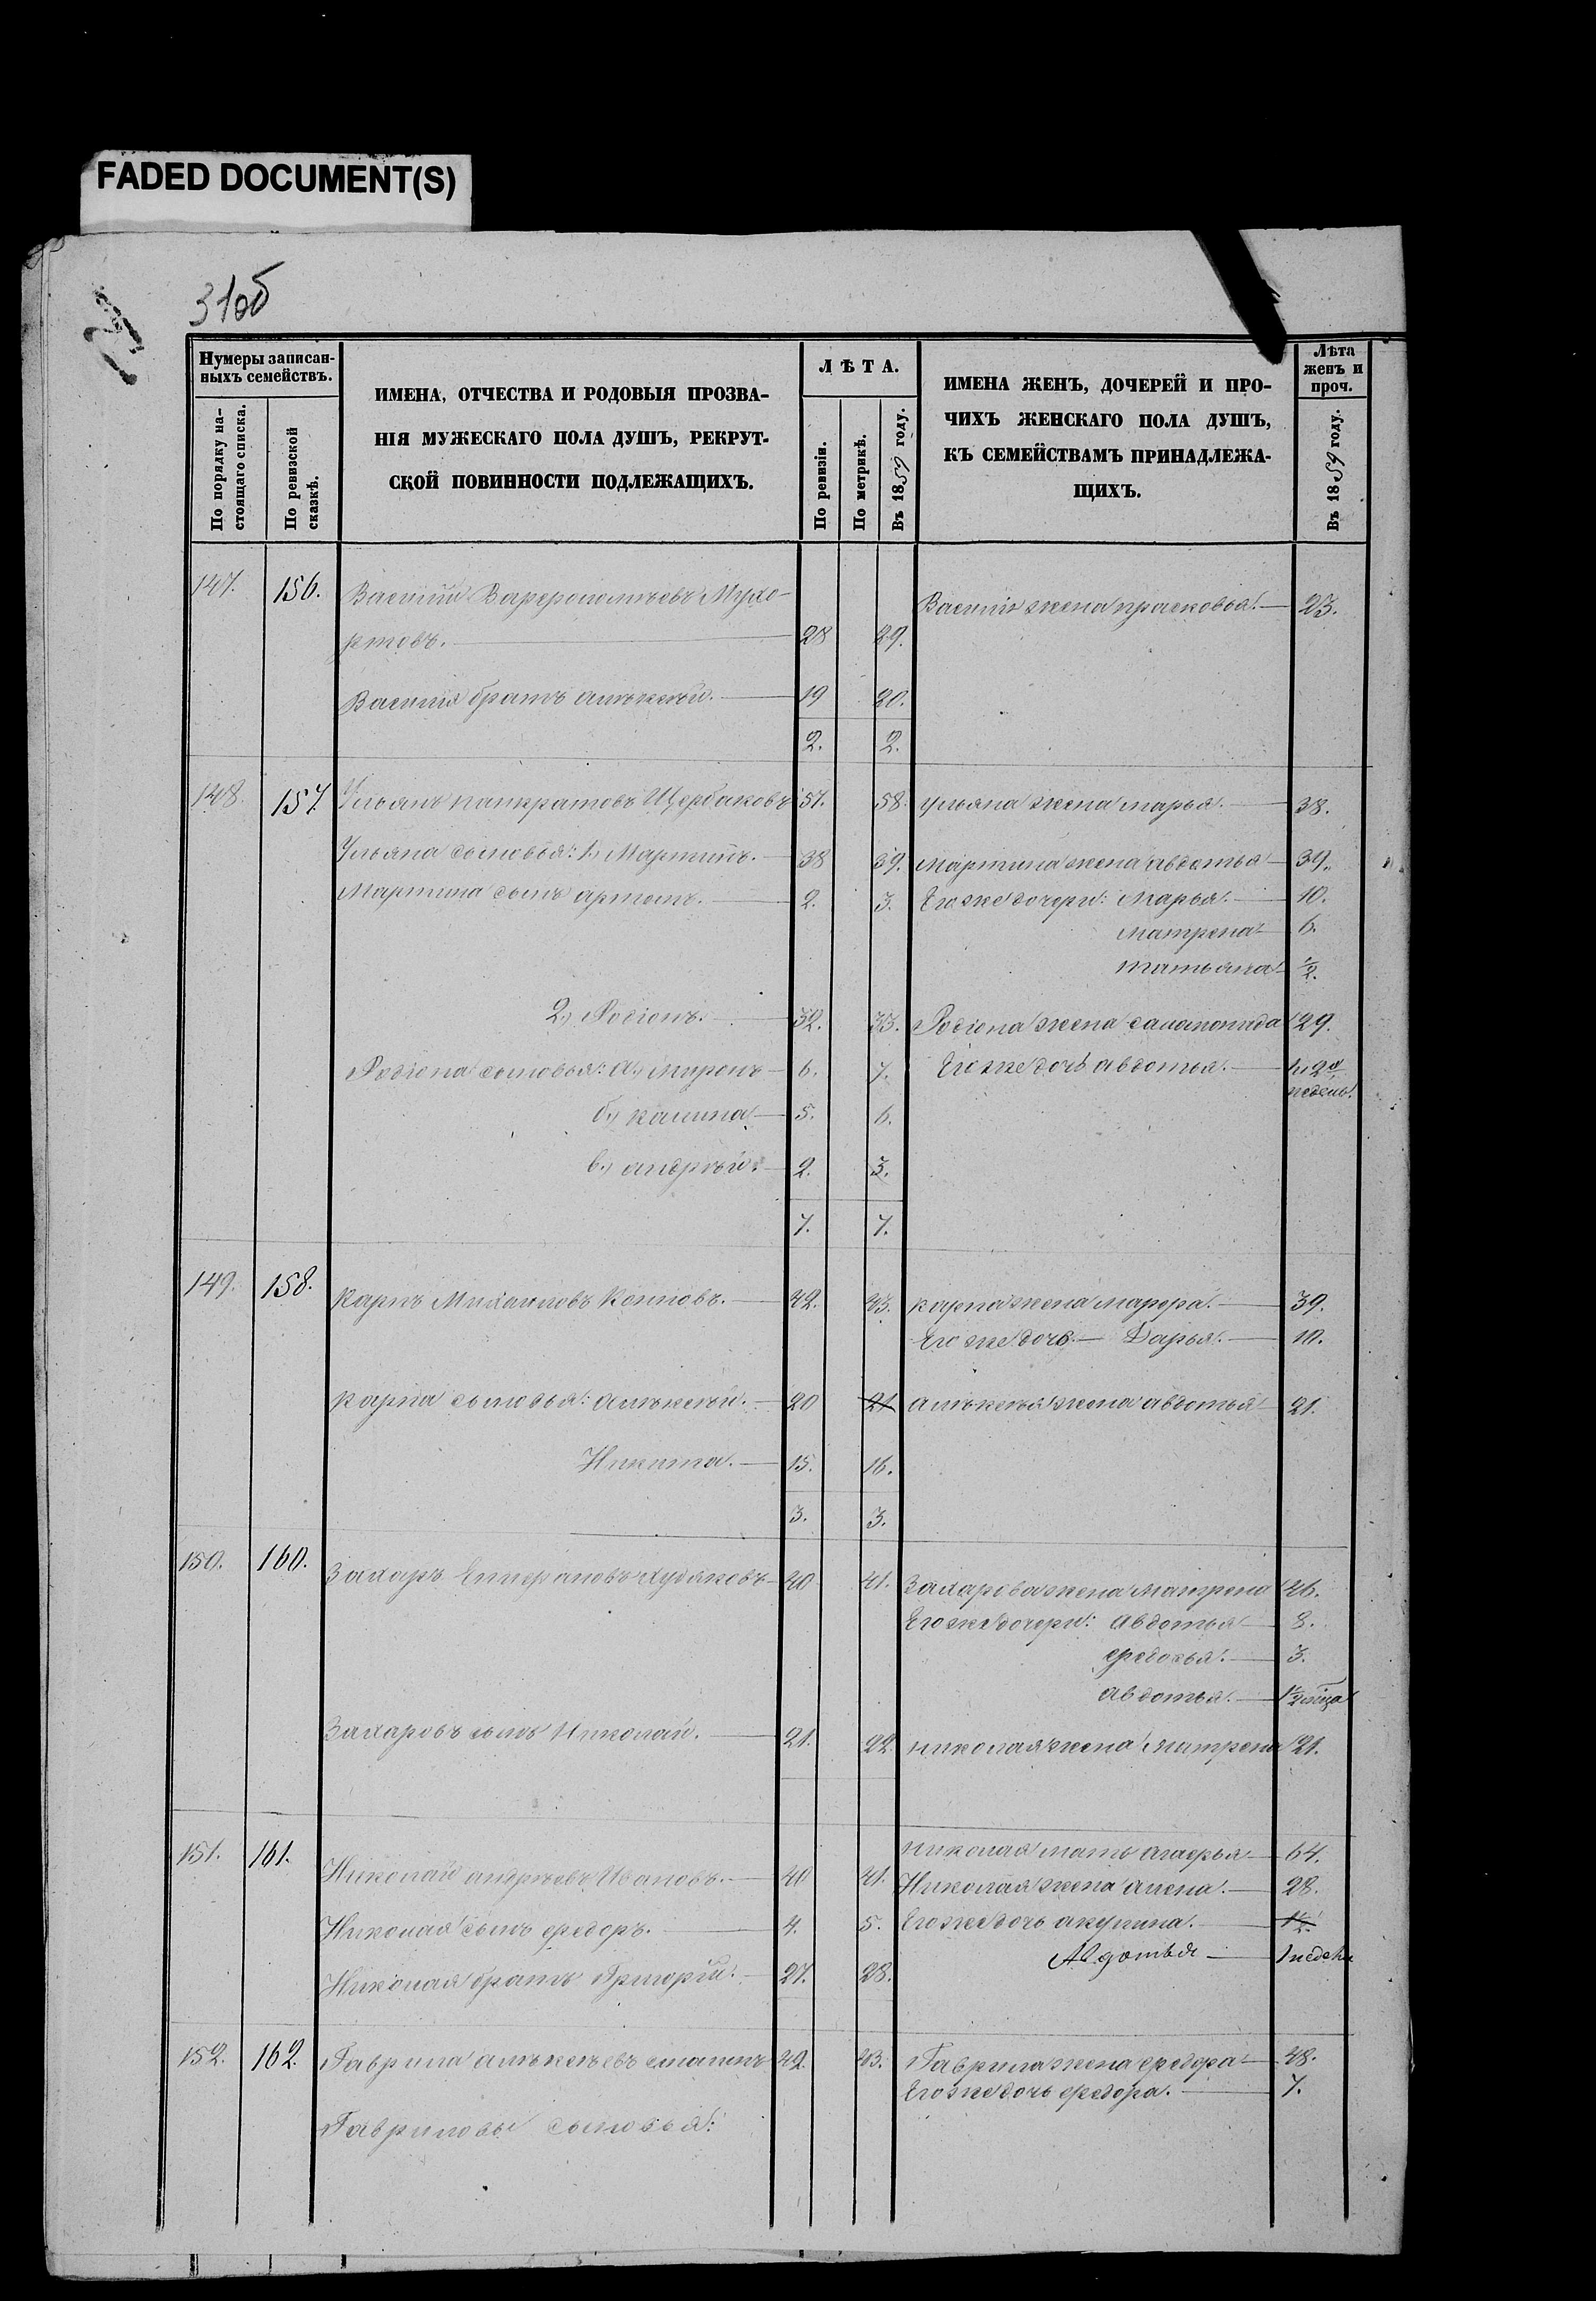 FADED DOCUMENT(S)
31об
Нумеры записан-
ныхъ семействъ.
По порядку на-
стоящаго списка.
По ревизской
сказкѣ.
ИМЕНА, ОТЧЕСТВА И РОДОВЫЯ ПРОЗВА-
НІЯ МУЖЕСКАГО ПОЛА ДУШЪ, РЕКРУТ-
СКОЙ ПОВИННОСТИ ПОДЛЕЖАЩИХЪ.
ЛѢТА.
По ревизіи.
По метрикѣ.
Въ 1859 году.
ИМЕНА ЖЕНЪ, ДОЧЕРЕЙ И ПРО-
ЧИХЪ ЖЕНСКАГО ПОЛА ДУШЪ,
КЪ СЕМЕЙСТВАМЪ ПРИНАДЛЕЖА-
ЩИХЪ.
Лѣта
женъ и
проч.
Въ 1859 году.
147. 156. Василій Варфоломѣевъ Мухо-
Василія жена прасковья. 23.
ртовъ. 28 29.
Василія братъ алѣксѣй. 19 20.
2. 2.
148. 157. Ульянъ панкратовъ Щербаковъ 57. 58. ульяна жена марья. 38.
Ульяна сыновья: 1.) Мартинъ. 38 39. мартина жена авдотья 39.
Мартина сынъ артомъ. 2. 3. Его же дочери: Марья. 10.
матрена 6.
татьяна 1/2.
2.) Родіонъ. 32. 33. Родіона жена саломонида 29.
Родіона сыновья: а.) миронъ 6. 7. Его же дочь авдотья.
недѣль.
б.) калина 5. 6.
в.) андрѣй. 2. 3.
7. 7.
149. 158. карпъ Михаиловъ 42. 43. карпа жена марфа. 39.
Его же дочь Дарья. 10.
карпа сыновья: алѣксѣй. 20 21 алѣксѣя жена авдотья 21.
Никита. 15. 16.
3. 3.
150. 160. Захаръ Епифановъ худяковъ 40 41. Захарова жена матрена 26.
Его же дочери: авдотья 8.
федосья. 3.
авдотья. 1/2 мѣца
Захаровъ сынъ Николай. 21. 22. николая жена матрена 21.
151. 161. николая мать агафья 64.
Николай андрѣевъ Ивановъ. 40 41. Николая жена алена. 28.
Николая сынъ федоръ. 4. 5. Его же дочь акулина. 1/2.
Авдотья 1 недели
Николая братъ Григорій. 27. 28.
152. 162. Гаврила алѣксѣевъ 42. 43. Гаврила жена федора 48.
Его же дочь федора. 7.
Гавриловы сыновья: